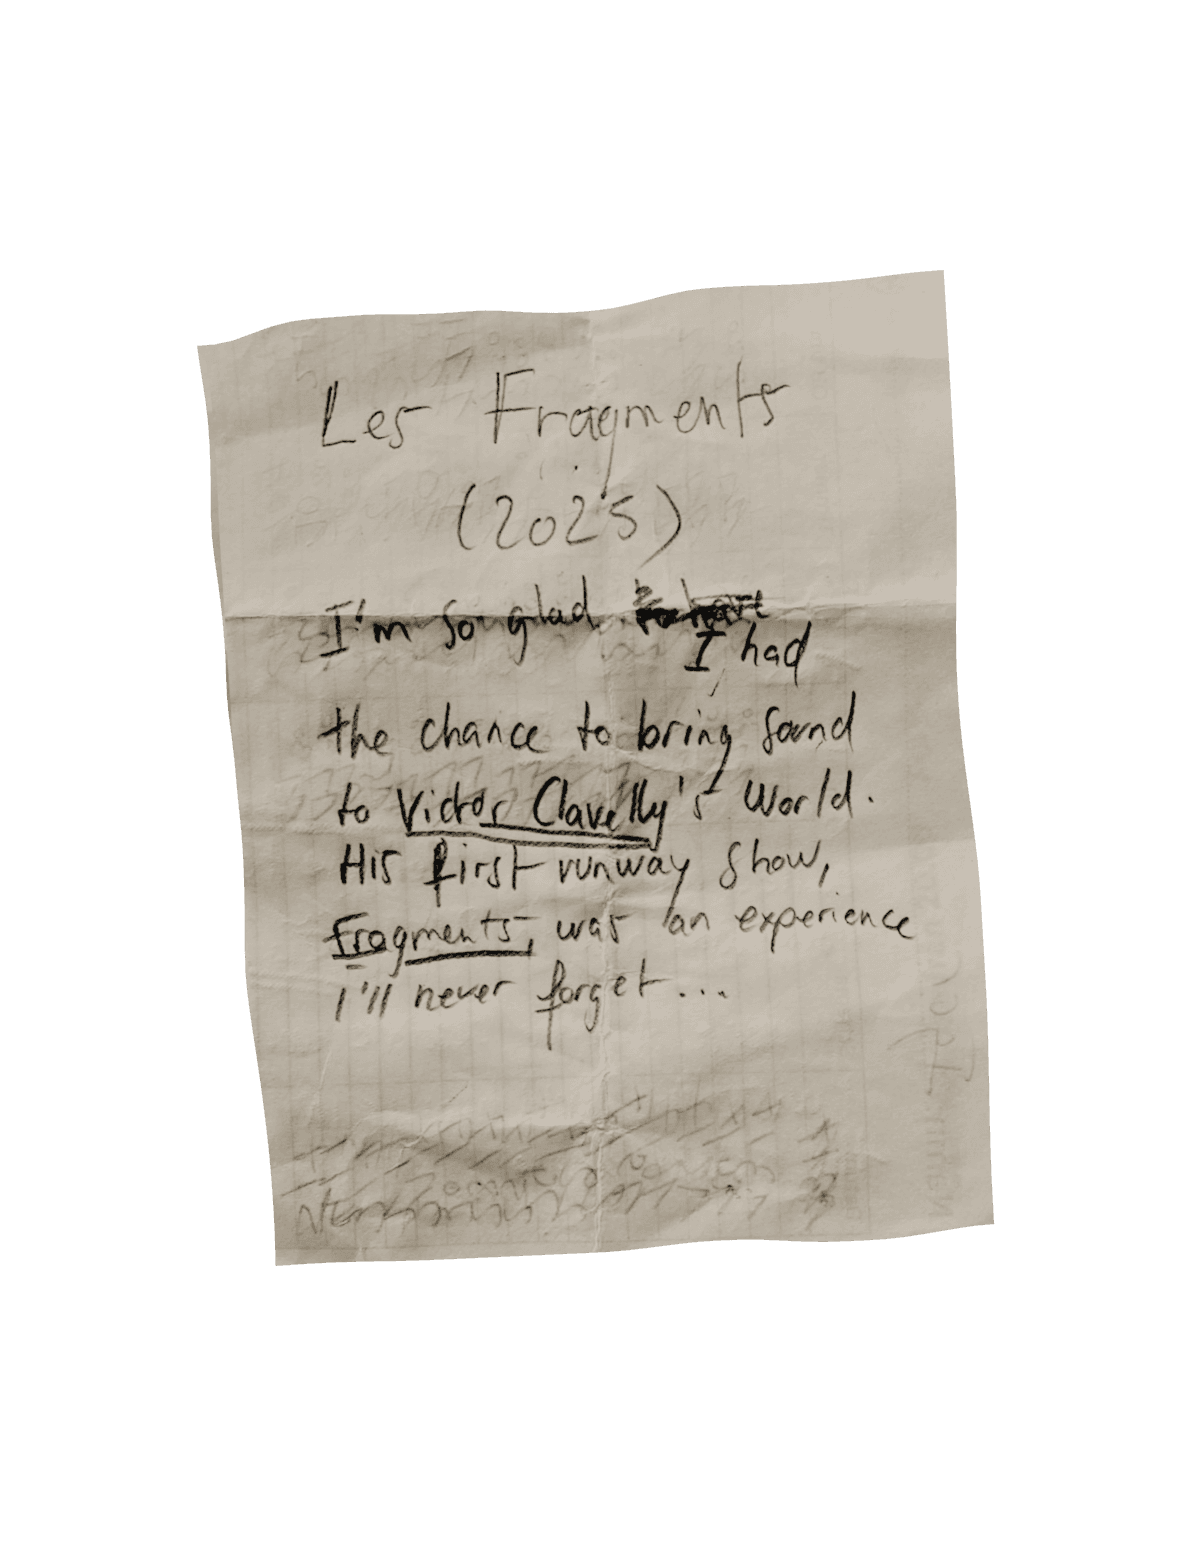 Les Fragments
(2025)
I'm so glad to have
I had
the chance to bring sound
to Victor Clavelly's world.
His first runway show,
Fragments, was an experience
I'll never forget...